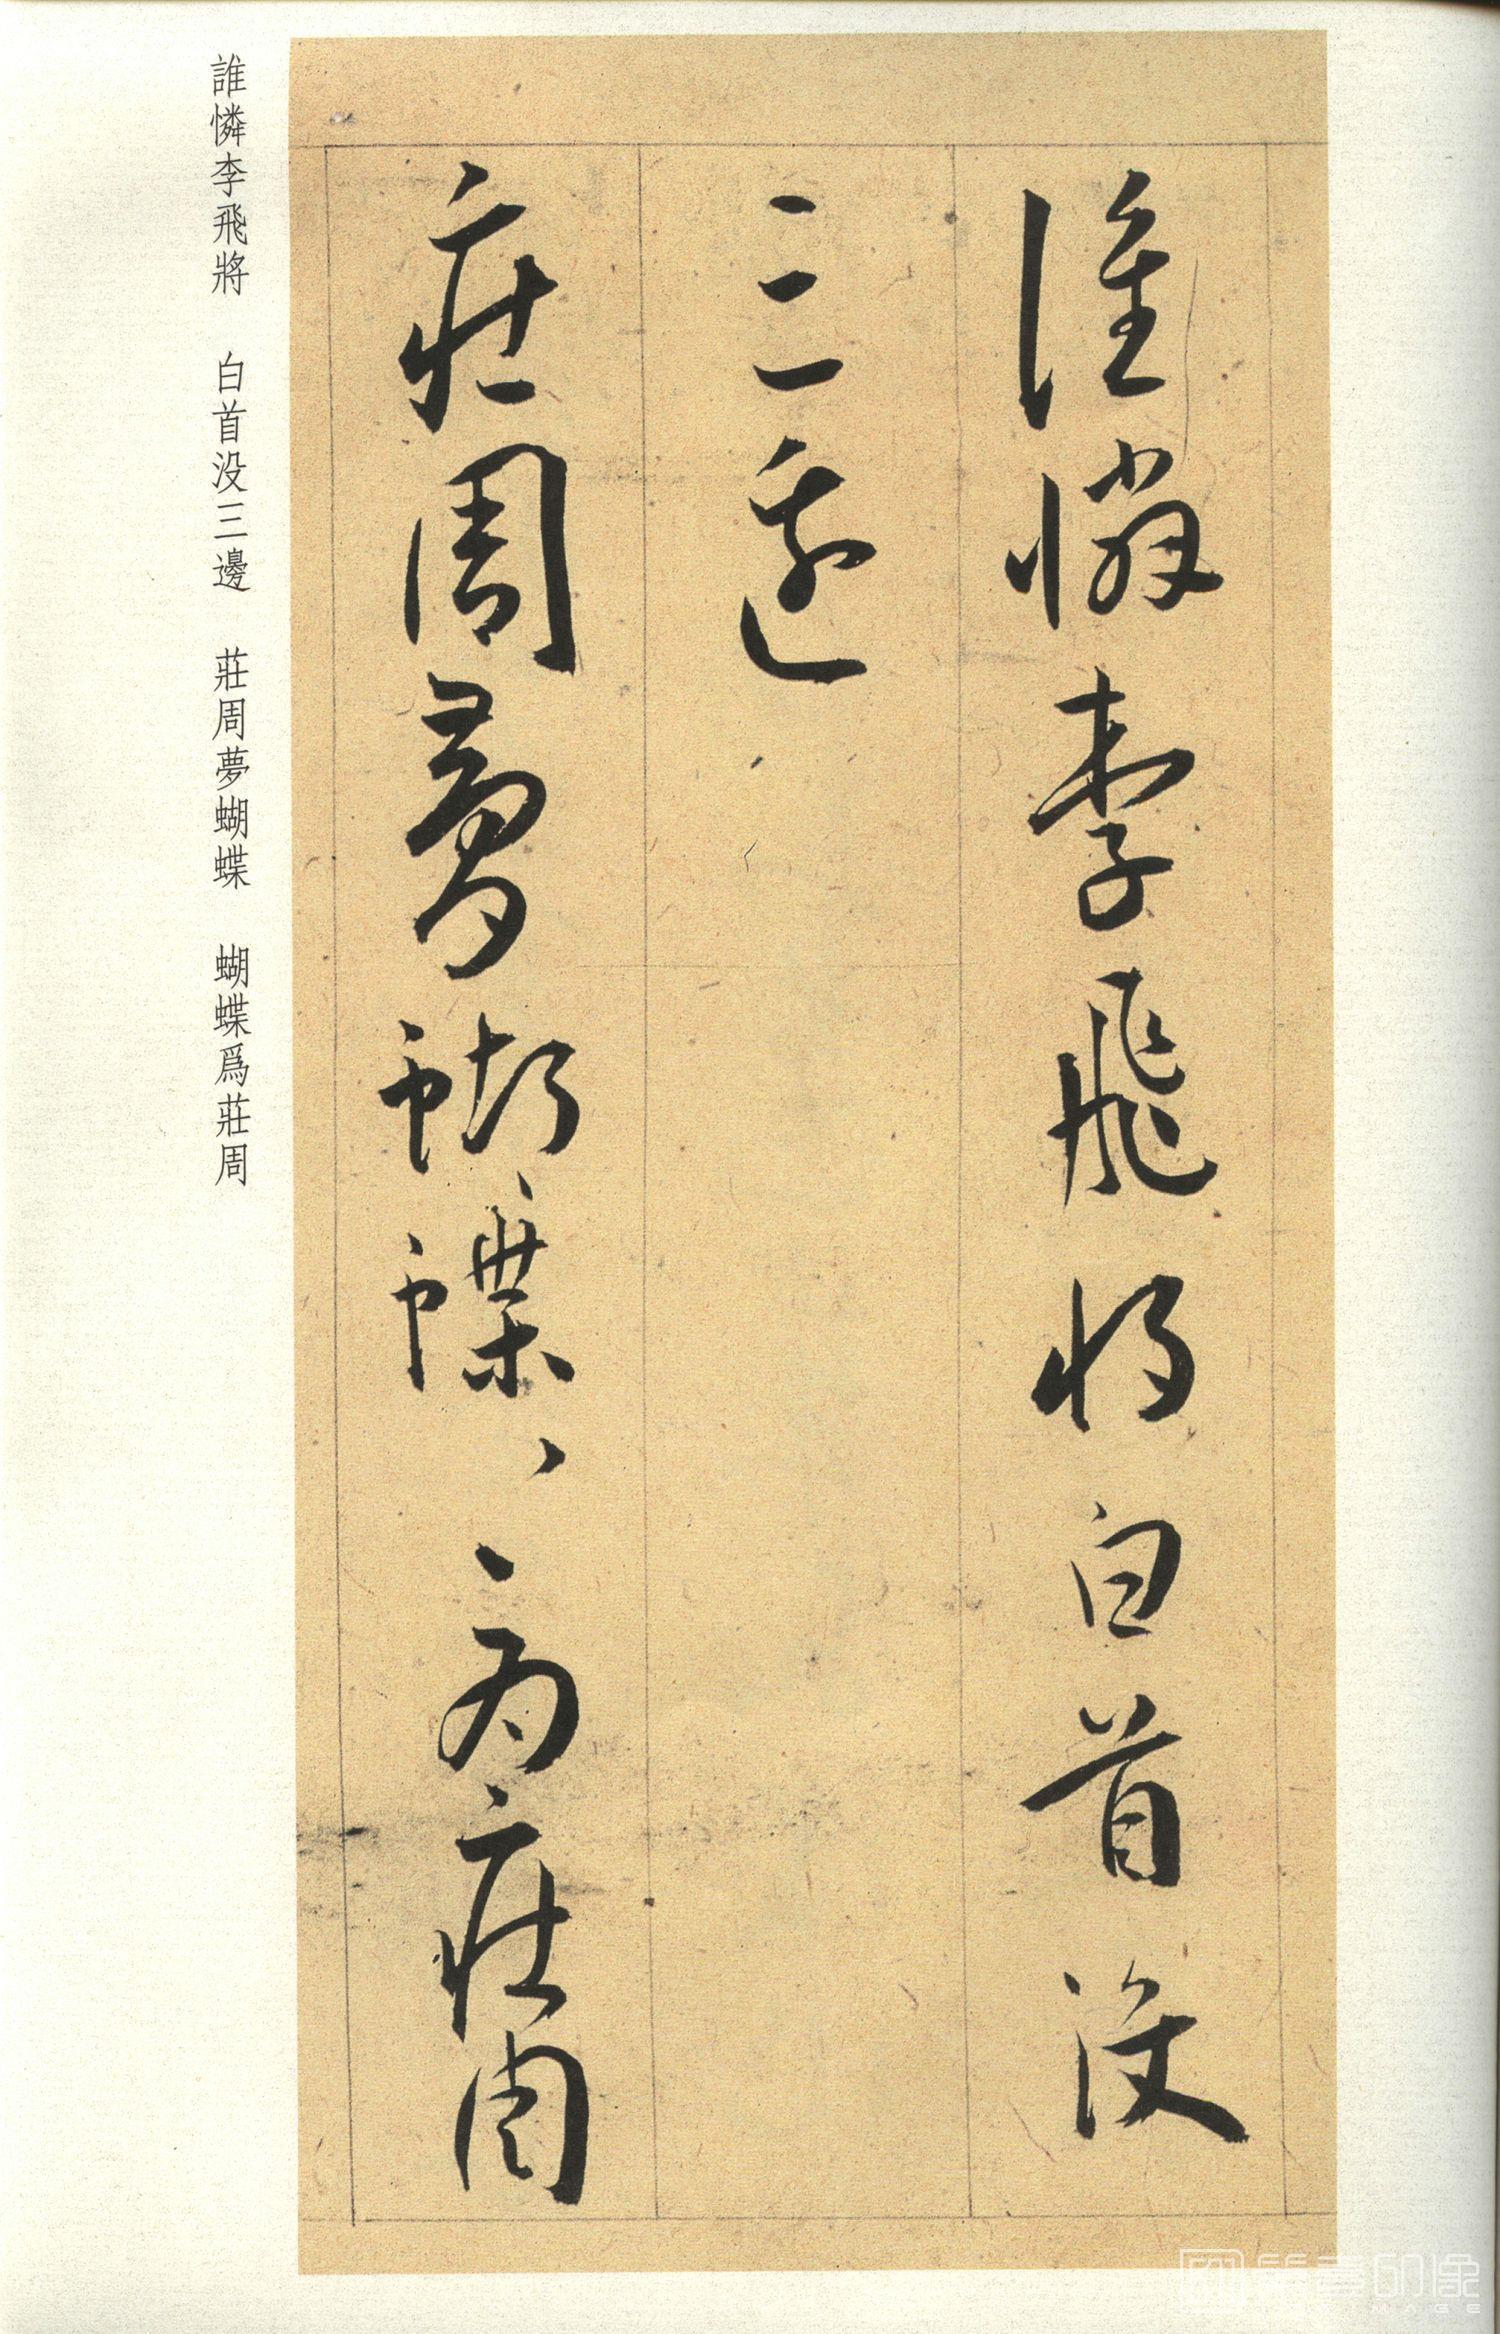 誰憐李飛將白首没
三邊
莊周夢蝴蝶〻為莊周
誰憐李飛將　白首没三邊　莊周夢蝴蝶　蝴蝶爲莊周